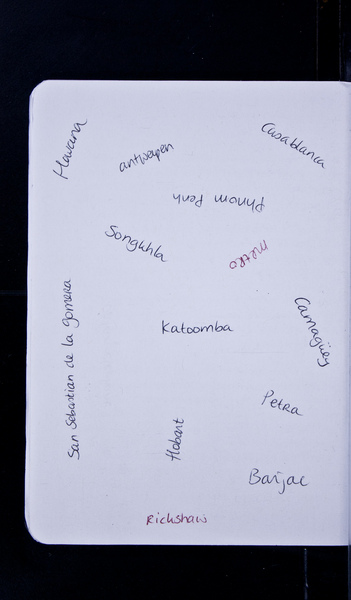 Havana
antwerpen
Casablanca
Phnom Penh
Songkhla
metro
San Sebastian de la gomera
Katoomba
Camagüey
Petra
Hobart
Barjac
Rickshaw